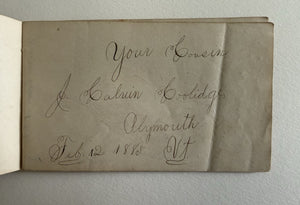 Your Cousin
J Calvin Coolidge
Plymouth
Feb. 12 1885 Vt